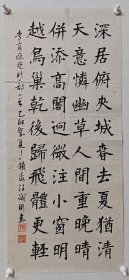 深居俯夾城春去夏猶清
天意憐幽草人間重晚晴
併添高閣迥微注小窗明
越鳥巢乾後歸飛體更輕
李商隱晚晴